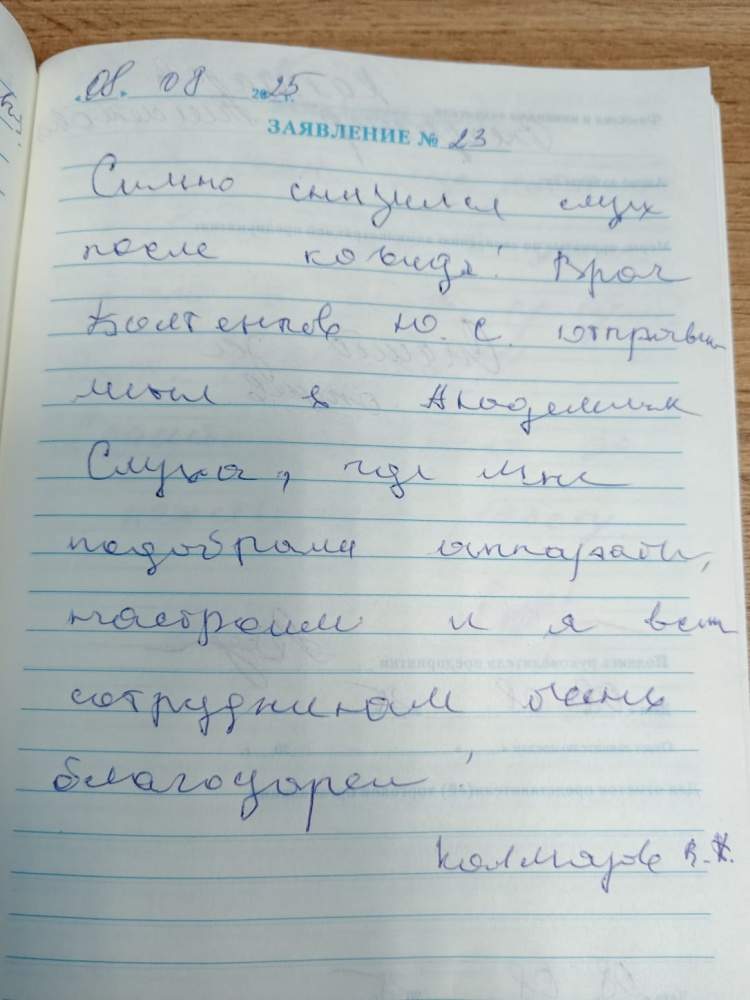 «08» 08 2025 г.
ЗАЯВЛЕНИЕ № 23
Сильно снизился слух
после ковида! Врач
Ю. С. отправил
меня в Академик
Слуха, где мне
подобрали аппараты,
настроили и я всем
сотрудникам очень
благодарен!